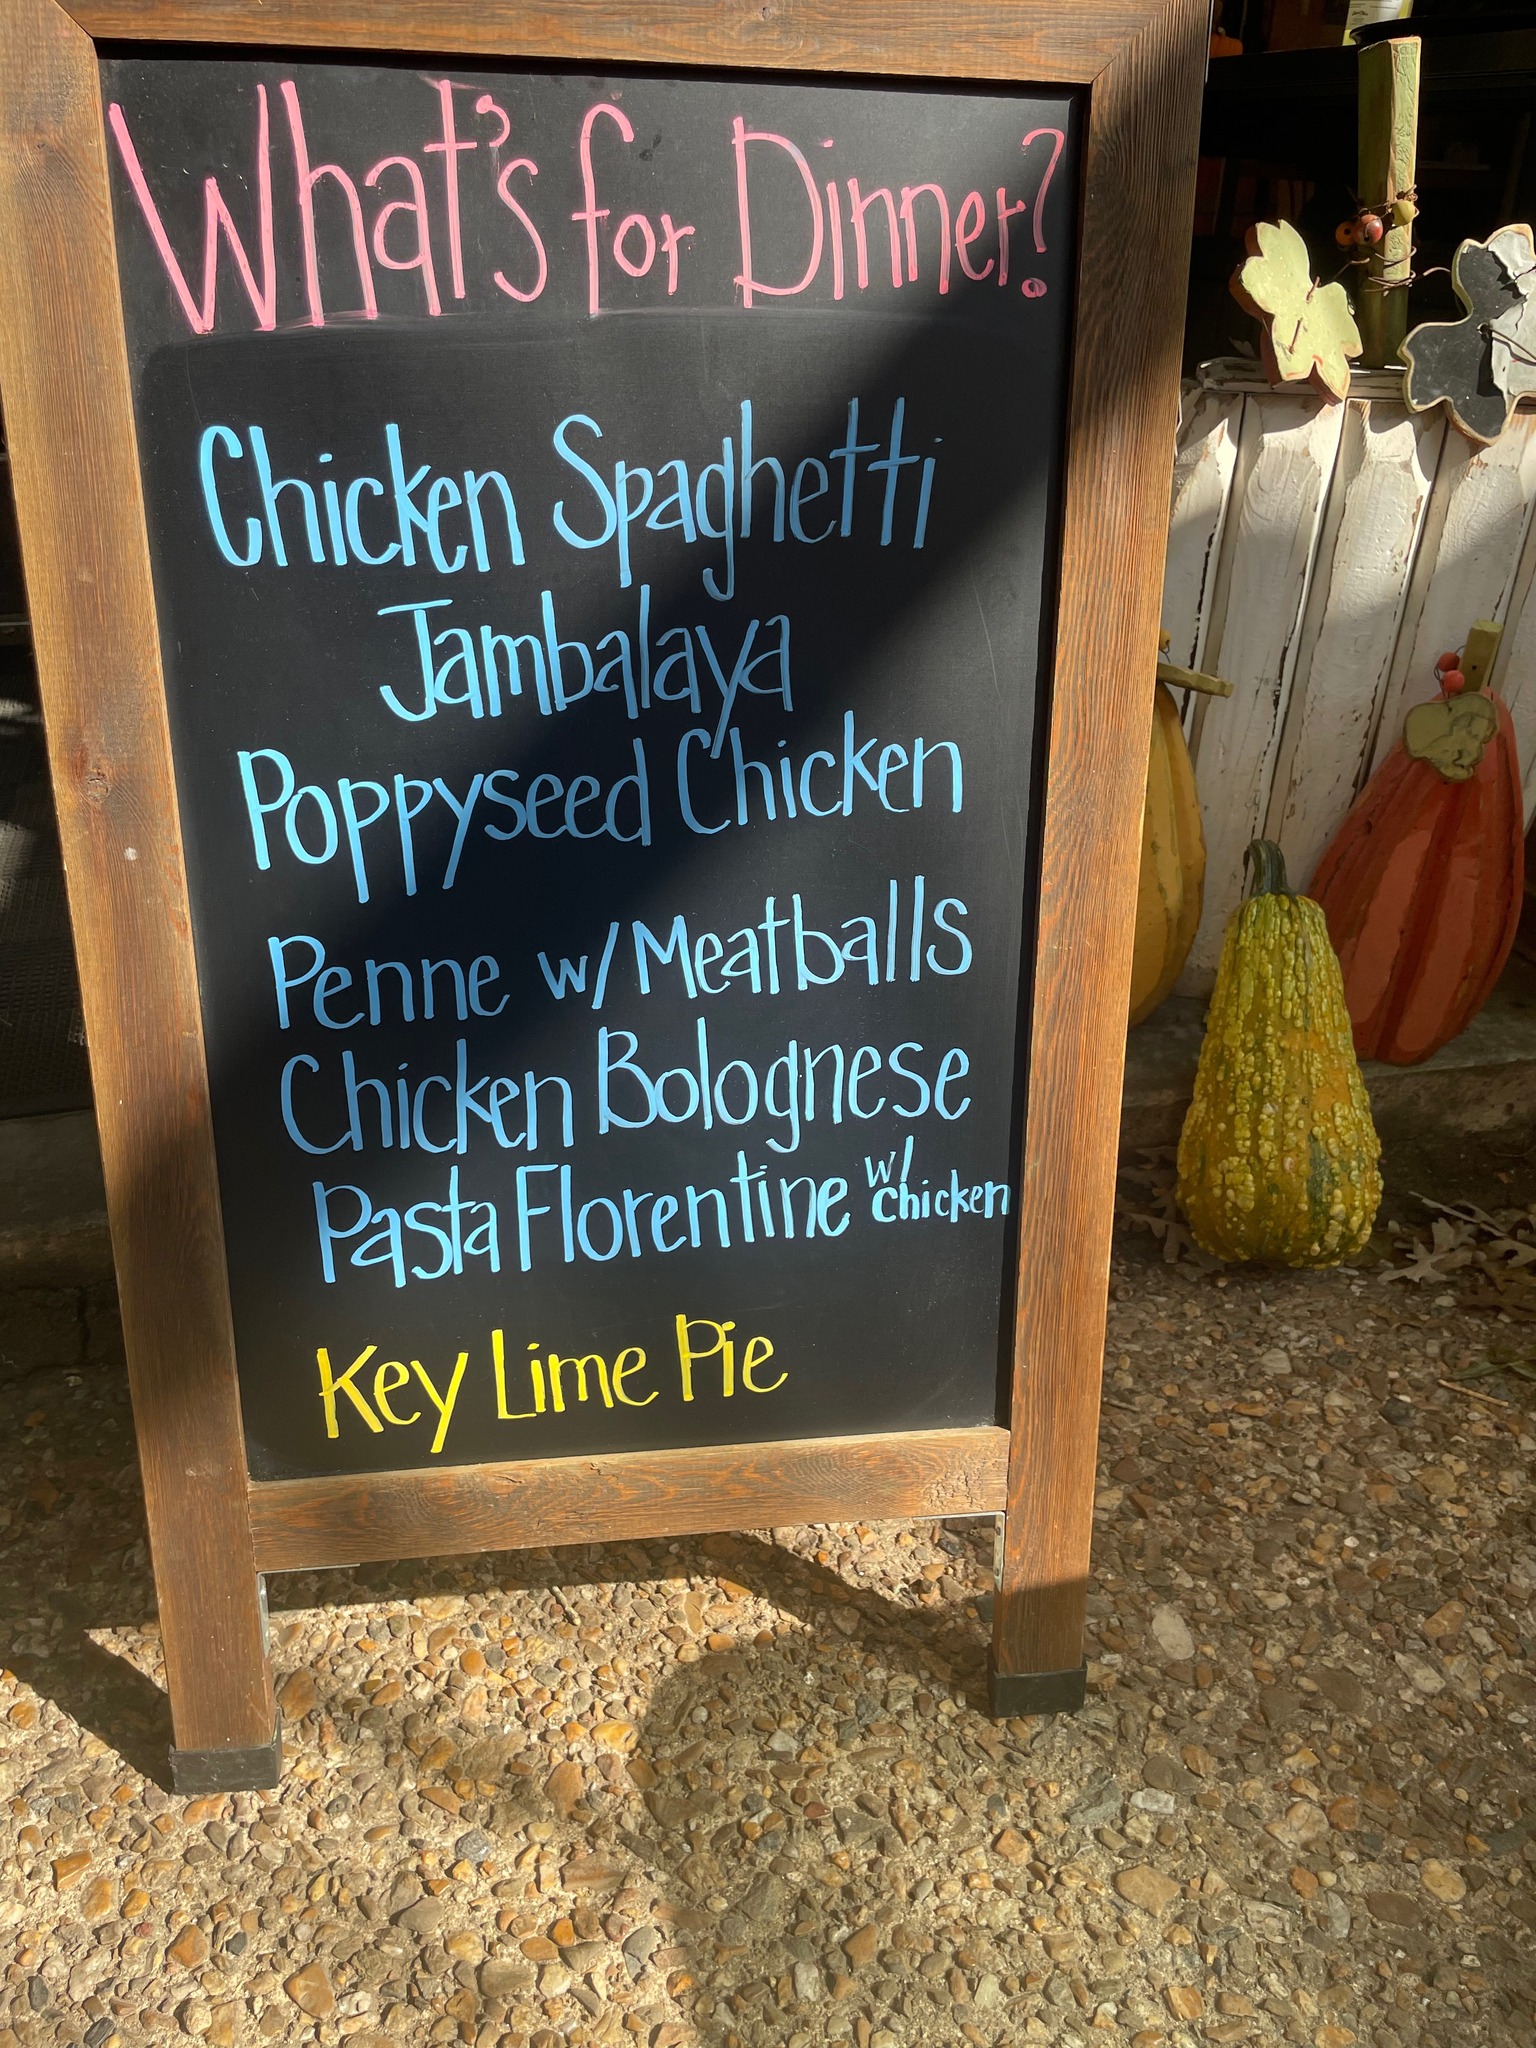 What's for Dinner?
Chicken Spaghetti
Jambalaya
Poppyseed Chicken
Penne w/ Meatballs
Chicken Bolognese
Pasta Florentine w/ Chicken
Key Lime Pie